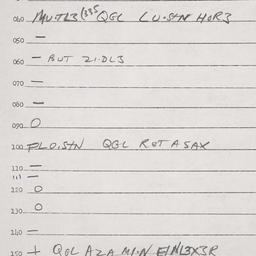 040 MUTL3 (335 QGL LU·STN HOR3
050 —
060 – BUT 21·DL3
070 —
080 —
090 O
100 FLO·STN QGL ROTASAX
110 —
111 —
120 O
130 O
140 —
150 + QGL AZA MI·N